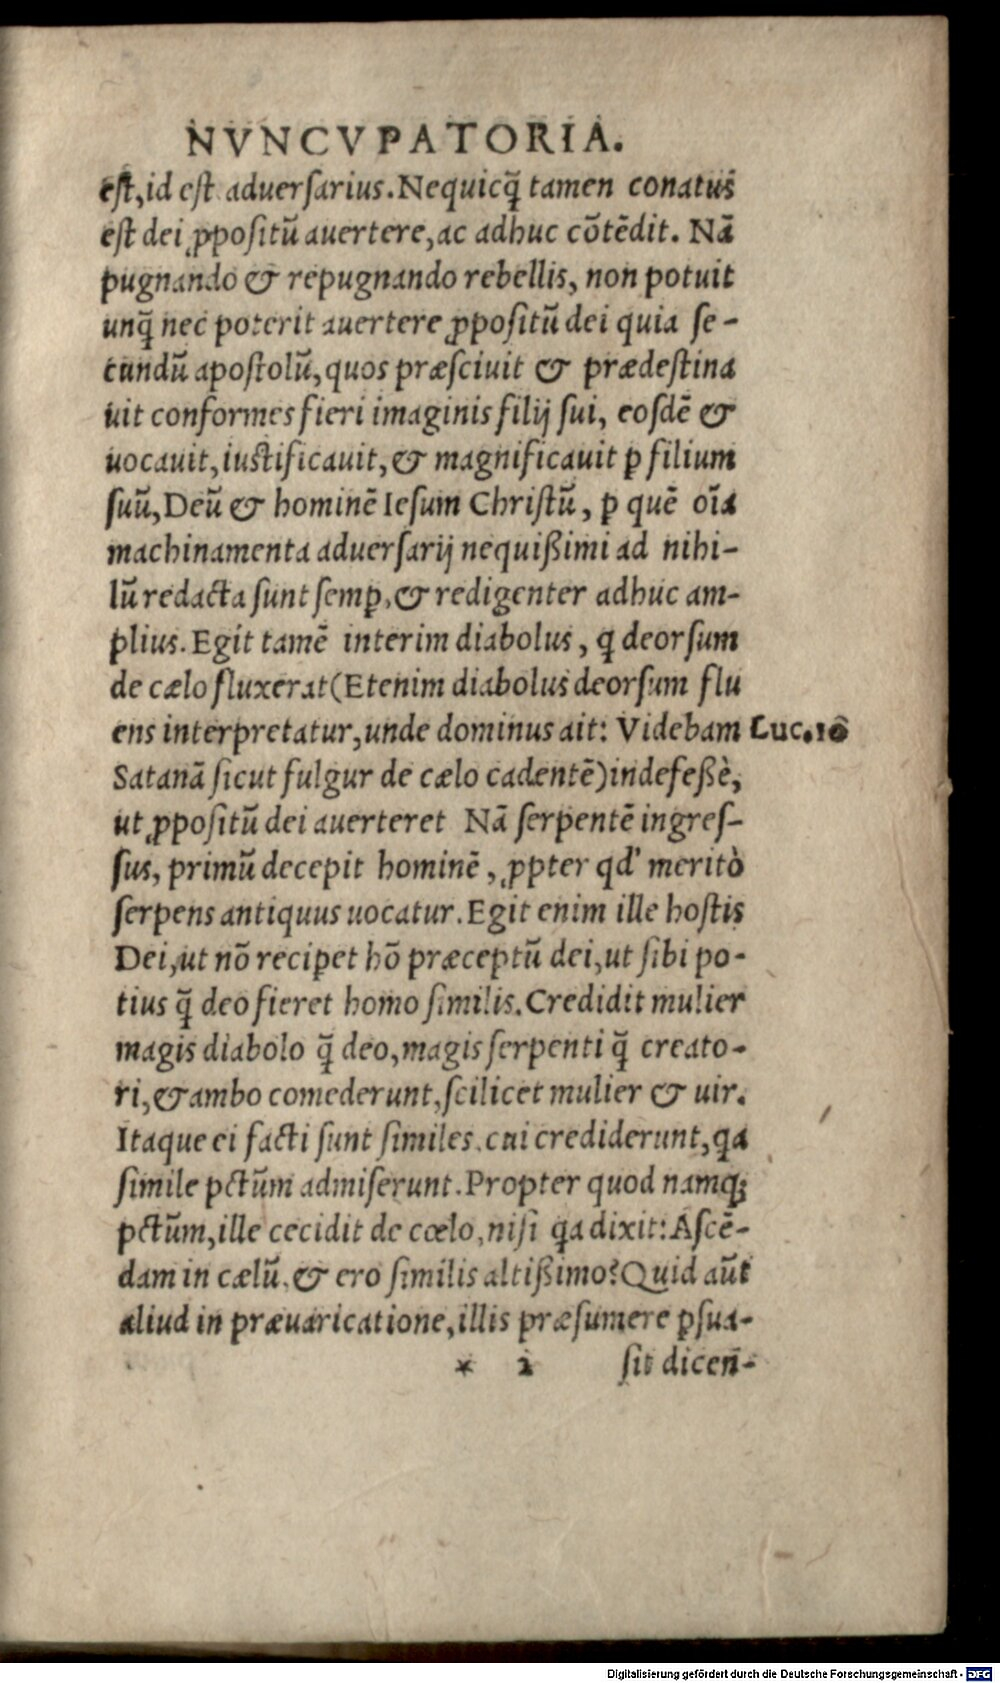 NVNCVPATORIA.
est, id est aduersarius. Nequicq̃ tamen conatus
est dei ꝓpositũ auertere, ac adhuc cõtẽdit. Nã
pugnando & repugnando rebellis, non potuit
unq̃ nec poterit auertere ꝓpositũ dei quia se-
cundũ apostolũ, quos præsciuit & prædestina
uit conformes fieri imaginis filij sui, eosdẽ &
uocauit, iustificauit, & magnificauit ꝑ filium
suũ, Deũ & hominẽ Iesum Christũ, ꝑ quẽ oĩa
machinamenta aduersarij nequißimi ad nihi-
lũ redacta sunt semꝑ, & redigenter adhuc am-
plius. Egit tamẽ interim diabolus, ꝗ deorsum
de cælo fluxerat (Etenim diabolus deorsum flu
ens interpretatur, unde dominus ait: Videbam Luc. 10
Satanã sicut fulgur de cælo cadentẽ) indefeßè,
ut ꝓpositũ dei auerteret Nã serpentẽ ingres-
sus, primũ decepit hominẽ, ꝓpter qd' meritò
serpens antiquus uocatur. Egit enim ille hostis
Dei, ut nõ reciꝑet hõ præceptũ dei, ut sibi po-
tius q̃ deo fieret homo similis. Credidit mulier
magis diabolo q̃ deo, magis serpenti q̃ creato-
ri, & ambo comederunt, scilicet mulier & uir.
Itaque ei facti sunt similes, cui crediderunt, ꝗa
simile pctũm admiserunt. Propter quod namq;
pctũm, ille cecidit de cœlo, nisi ꝗa dixit: Ascẽ-
dam in cælũ, & ero similis altißimo? Quid aũt
aliud in præuaricatione, illis præsumere ꝑsua-
* 2 sit dicen-
Digitalisierung gefördert durch die Deutsche Forschungsgemeinschaft - DFG